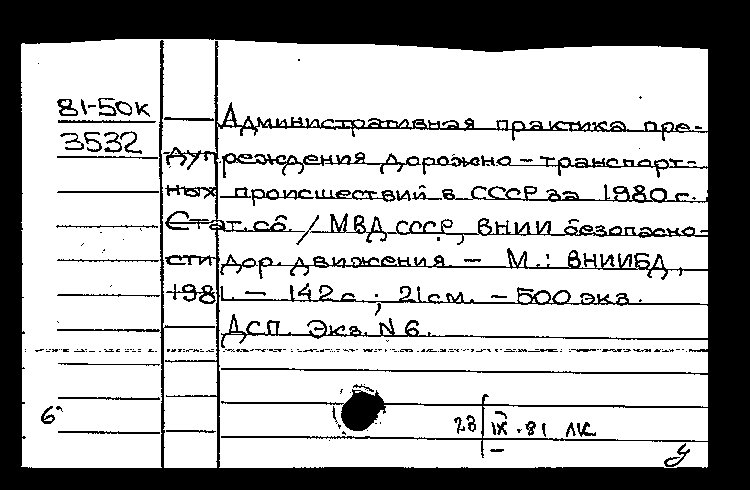 81-50к
3532
Административная практика пре-
дупреждения дорожно-транспорт-
ных происшествий в СССР за 1980 г.
Стат. сб. / МВД СССР, ВНИИ безопасно-
сти дор. движения. - М.: ВНИИБД,
1981. - 142 с.; 21 см. - 500 экз.
ДСП. Экз. N 6.
6
28 IX.81 ЛК